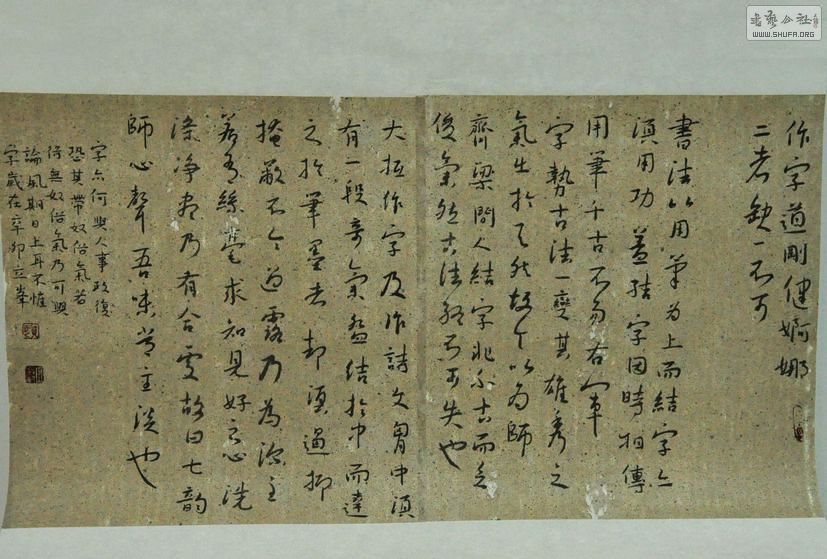 作字道剛健婀娜
二者缺一不可
書法以用筆為上而結字亦
須用功蓋結字因時相傳
用筆千古不易右軍
字勢古法一變其雄秀之
氣生於天然故古今以為師
齊梁間人結字非不古而乏
俊氣然古法終不可失也
大抵作字及作詩文胷中須
有一段奇氣盤結於中而達
之於筆墨者却須遏抑
掩蔽不令迫露乃為
若有絲毫求知見好之心洗
滌淨盡乃有合處故曰七韵
師心聲吾味吾主淡也
字亦何與人事政復
恐其帶奴俗氣若
得無奴俗氣乃可與
論風期日上耳不惟
字歲在辛卯立峯
書藝公社
WWW.SHUFA.ORG